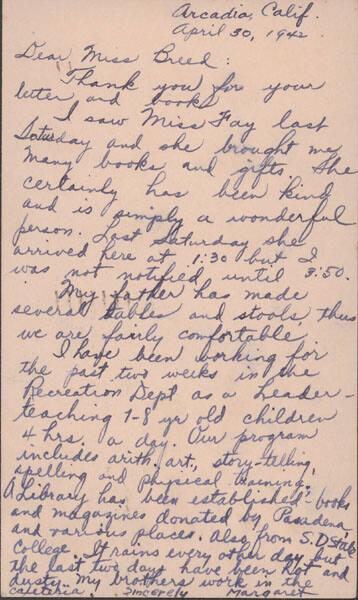 Arcadia, Calif.
April 30, 1942
Dear Miss Breed:
Thank you for your
letter and books
I saw Miss Fay last
Saturday and she brought me
many books and gifts. She
certainly has been kind
and is simply a wonderful
person. Last Saturday she
arrived here at 1:30 but I
was not notified until 3:50.
My father has made
several tables and stools, thus
we are fairly comfortable.
I have been working for
the past two weeks in the
Recreation Dept as a leader -
teaching 7-8 yr old children
4 hrs. a day. Our program
includes arith. art, story-telling,
spelling and physical training.
A Library has been established - books
and magazines donated by Pasadena
and various places. Also from S.D. State
College. It rains every other day but
the last two days have been hot and
dusty. My brothers work in the
cafeteria. Sincerely Margaret